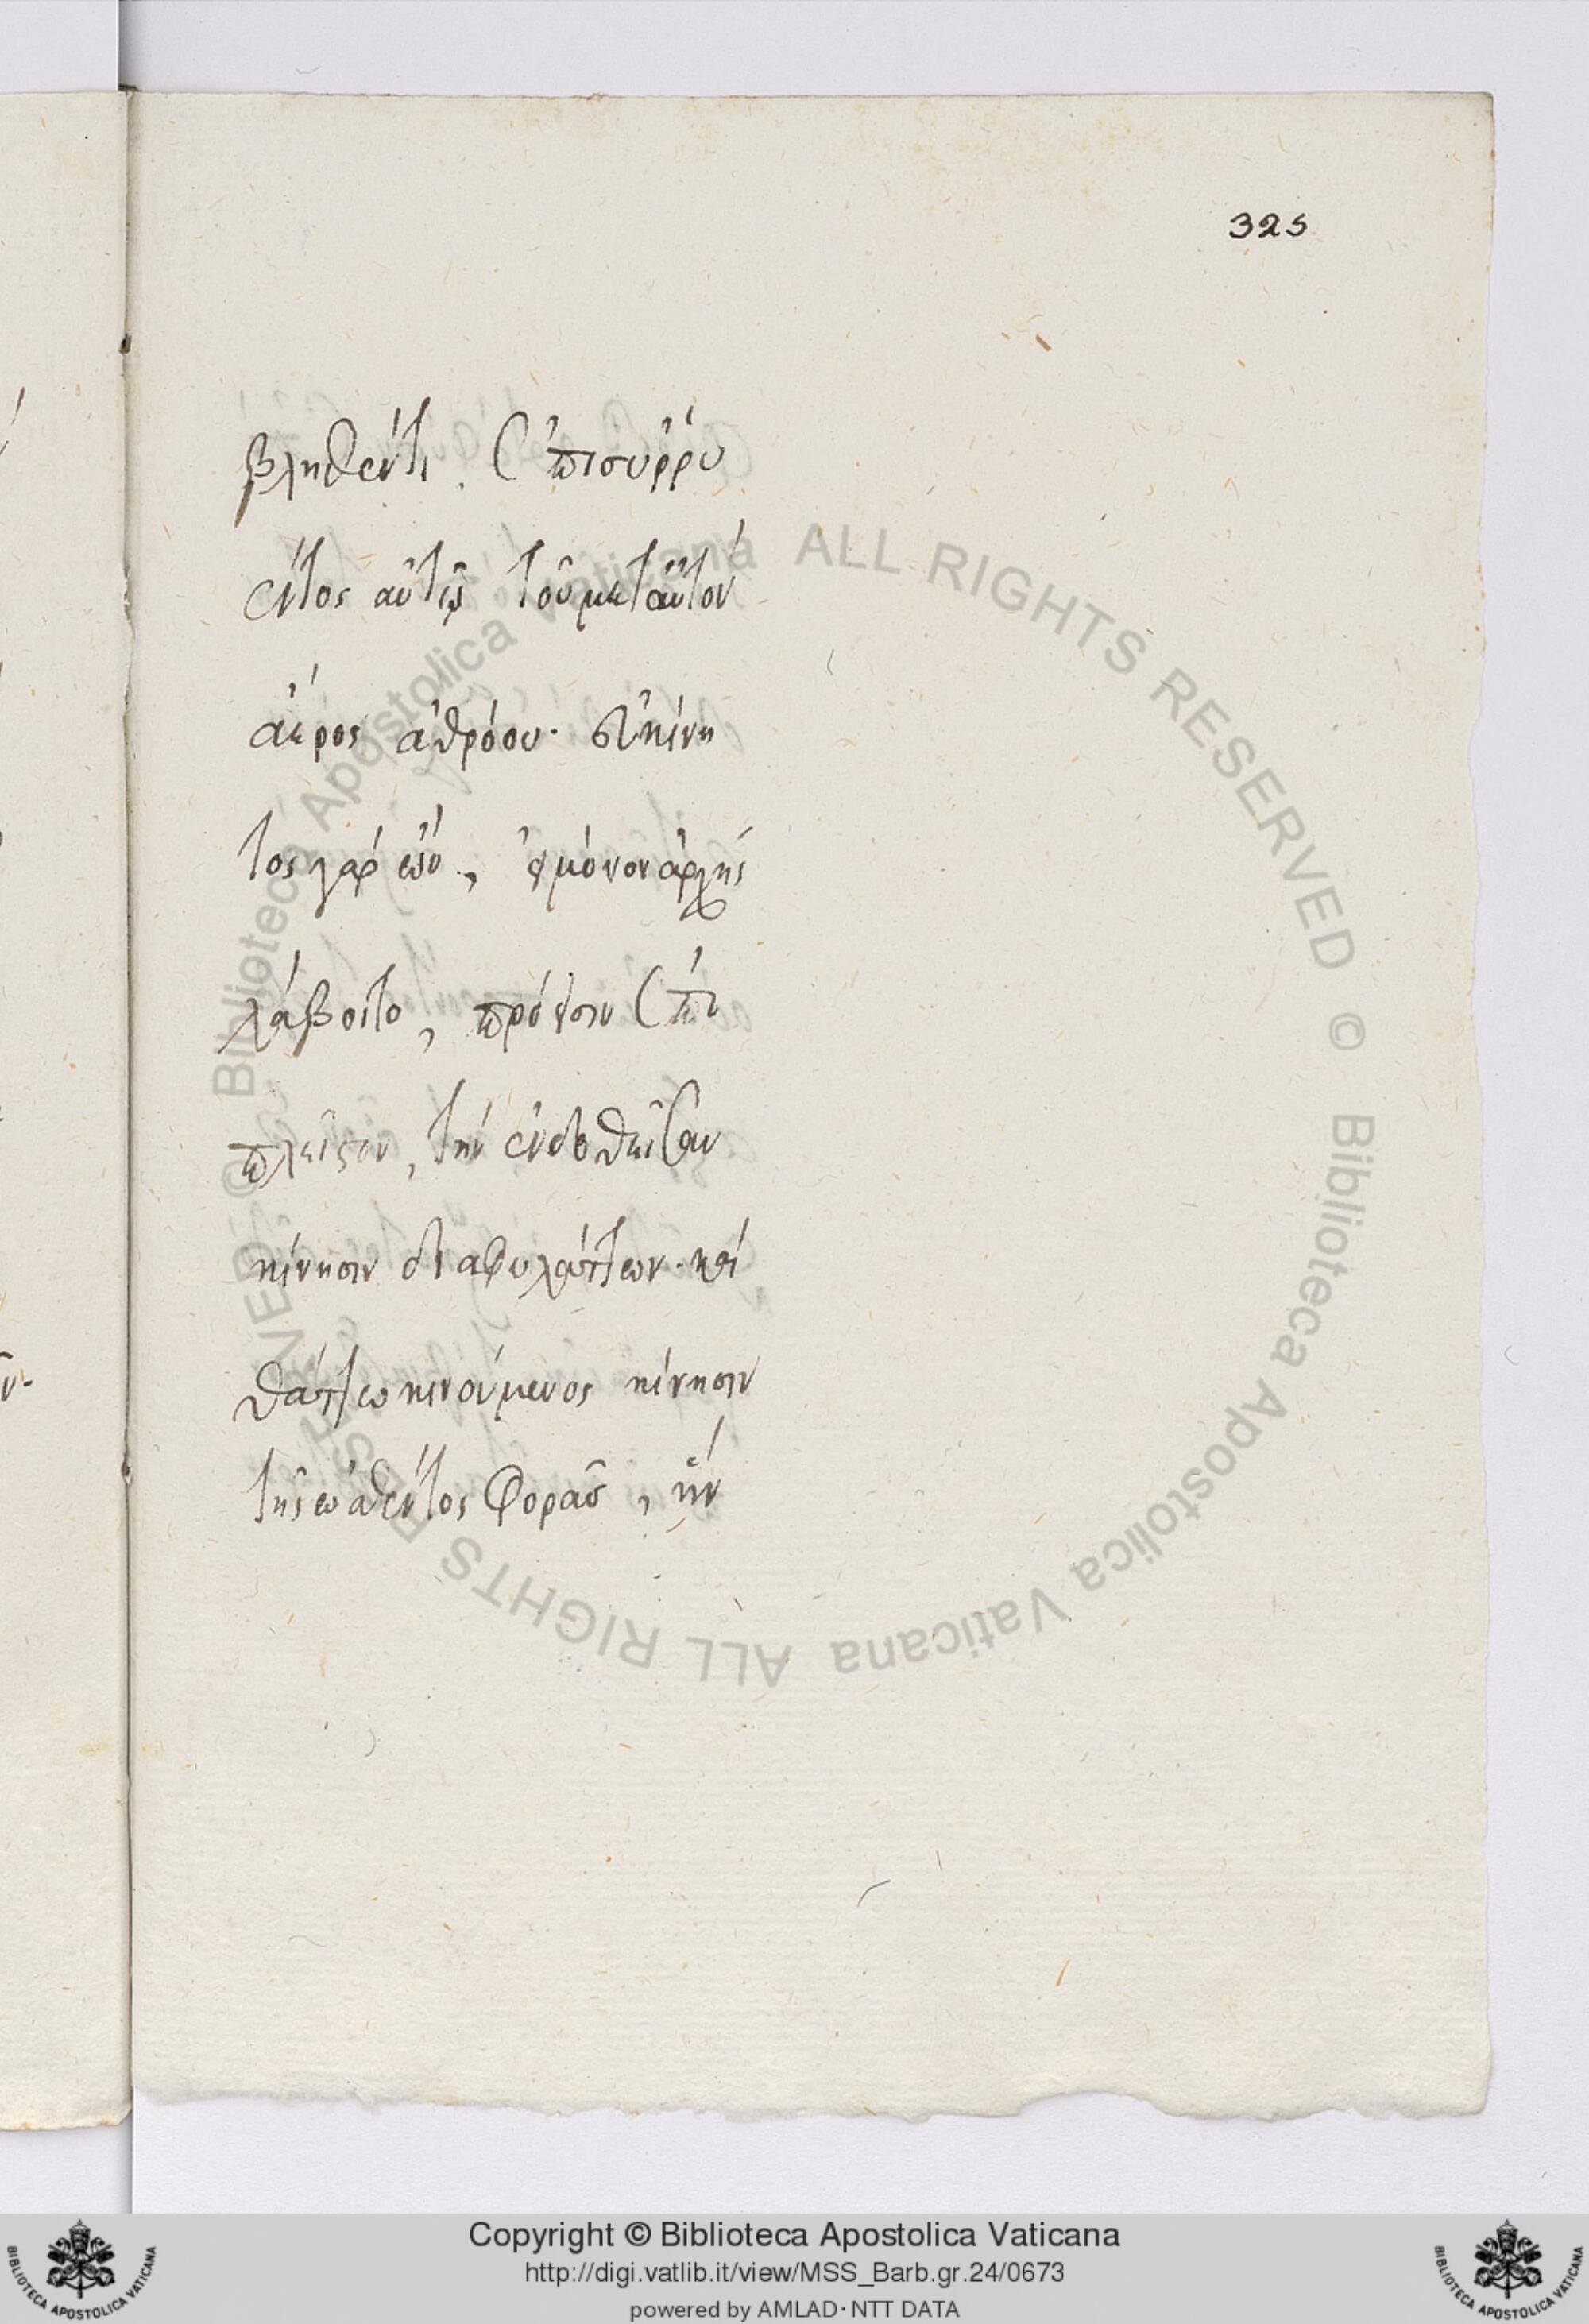 325
βληθέντι. ἐπισυῤῥυ
έντος αὐτῷ τοῦ μετ' αὐτὸν
ἀέρος ἀθρόου. εὐκίνη
τος γὰρ ὢν, εἰ μόνον ἀρχῆς
λάβοιτο, πρόεισιν ἐπὶ
πλεῖστον, τὴν ἐνδοθεῖσαν
κίνησιν διαφυλάττων. καὶ
θάττω κινούμενος κίνησιν
τῆς ὠσθέντος φορᾶς, ἣν
Biblioteca Apostolica Vaticana ALL RIGHTS RESERVED © Biblioteca Apostolica Vaticana ALL RIGHTS RESERVED ©
Copyright © Biblioteca Apostolica Vaticana
http://digi.vatlib.it/view/MSS_Barb.gr.24/0673
powered by AMLAD · NTT DATA
BIBLIOTECA APOSTOLICA VATICANA
BIBLIOTECA APOSTOLICA VATICANA